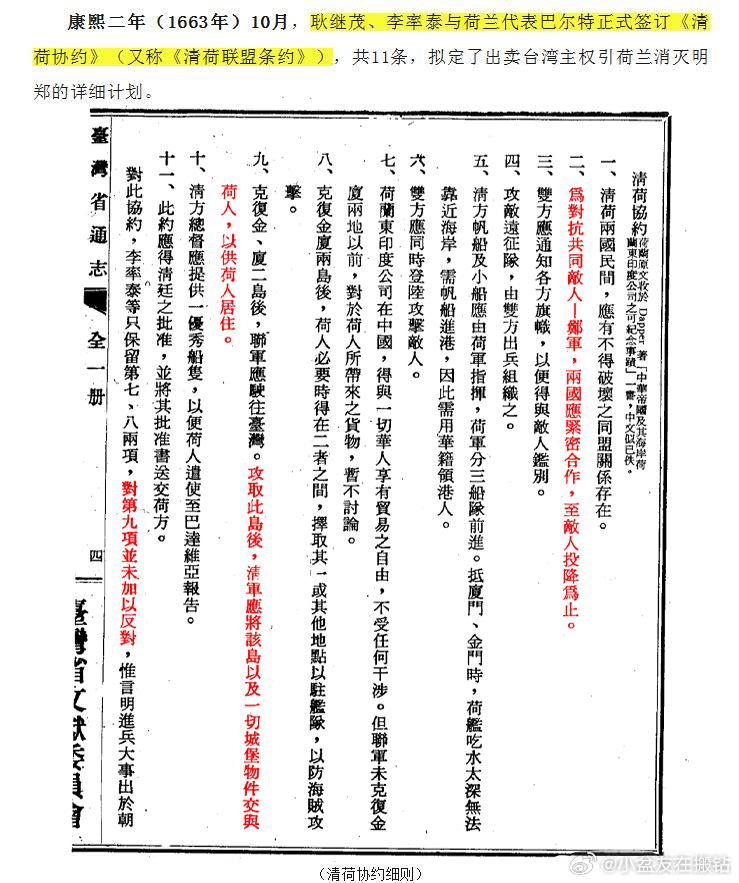 康熙二年（1663年）10月，耿继茂、李率泰与荷兰代表巴尔特正式签订《清
荷协约》（又称《清荷联盟条约》），共11条，拟定了出卖台湾主权引荷兰消灭明
郑的详细计划。
清荷協約
荷蘭原文收於Dapper著「中華帝國及其海岸荷
蘭東印度公司之司紀念事蹟」一書，中文似已佚。
一、清荷兩國民間，應有不得破壞之同盟關係存在。
二、爲對抗共同敵人—鄭軍，兩國應緊密合作，至敵人投降爲止。
三、雙方應通知各方旗幟，以便得與敵人鑑別。
四、攻敵遠征隊，由雙方出兵組織之。
五、清方帆船及小船應由荷軍指揮，荷軍分三船隊前進。抵廈門、金門時，荷艦吃水太深無法
靠近海岸，需帆船進港，因此需用華籍領港人。
六、雙方應同時登陸攻擊敵人。
七、荷蘭東印度公司在中國，得與一切華人享有貿易之自由，不受任何干涉。但聯軍未克復金
廈兩地以前，對於荷人所帶來之貨物，暫不討論。
八、克復金廈兩島後，荷人必要時得在二者之間，擇取其一或其他地點以駐艦隊，以防海賊攻
擊。
九、克復金、廈二島後，聯軍應駛往臺灣。攻取此島後，清軍應將該島以及一切城堡物件交與
荷人，以供荷人居住。
十、清方總督應提供一優秀船隻，以便荷人遣使至巴達維亞報告。
十一、此約應得清廷之批准，並將其批准書送交荷方。
對此協約，李率泰等只保留第七、八兩項，對第九項並未加以反對，惟言明進兵大事出於朝
臺灣省通志 全一册 四 臺灣省文獻委員會
（清荷协约细则）
@小盆友在搬钻